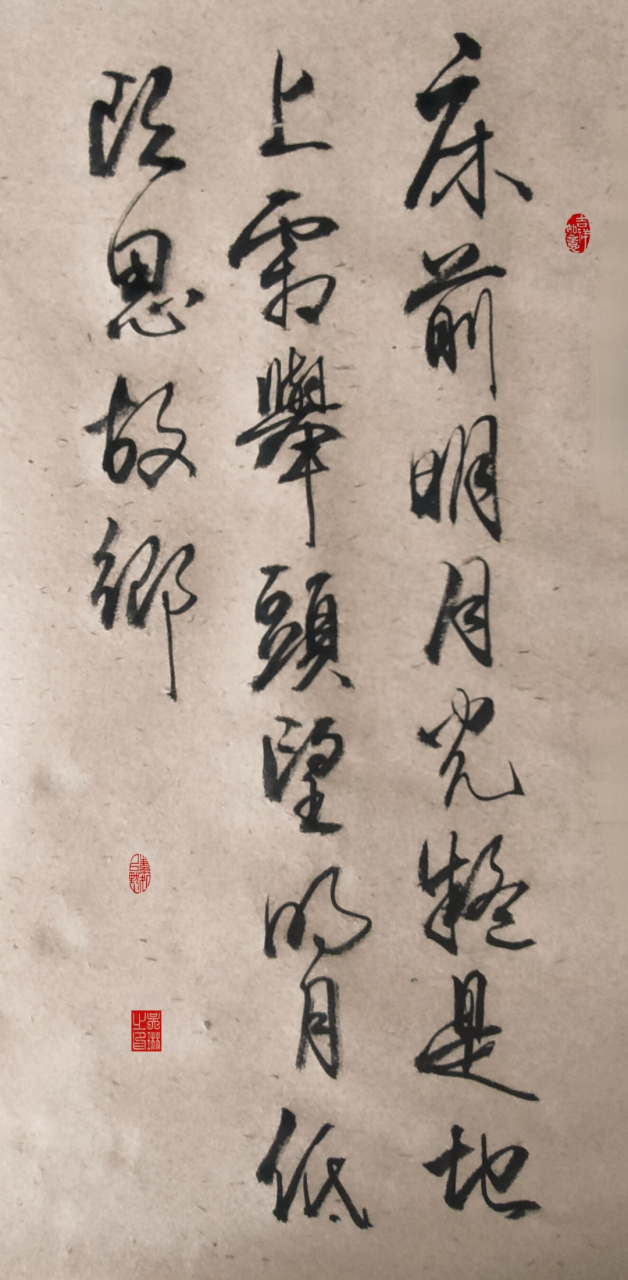 床前明月光疑是地
上霜舉頭望明月低
頭思故鄉
吉祥如意